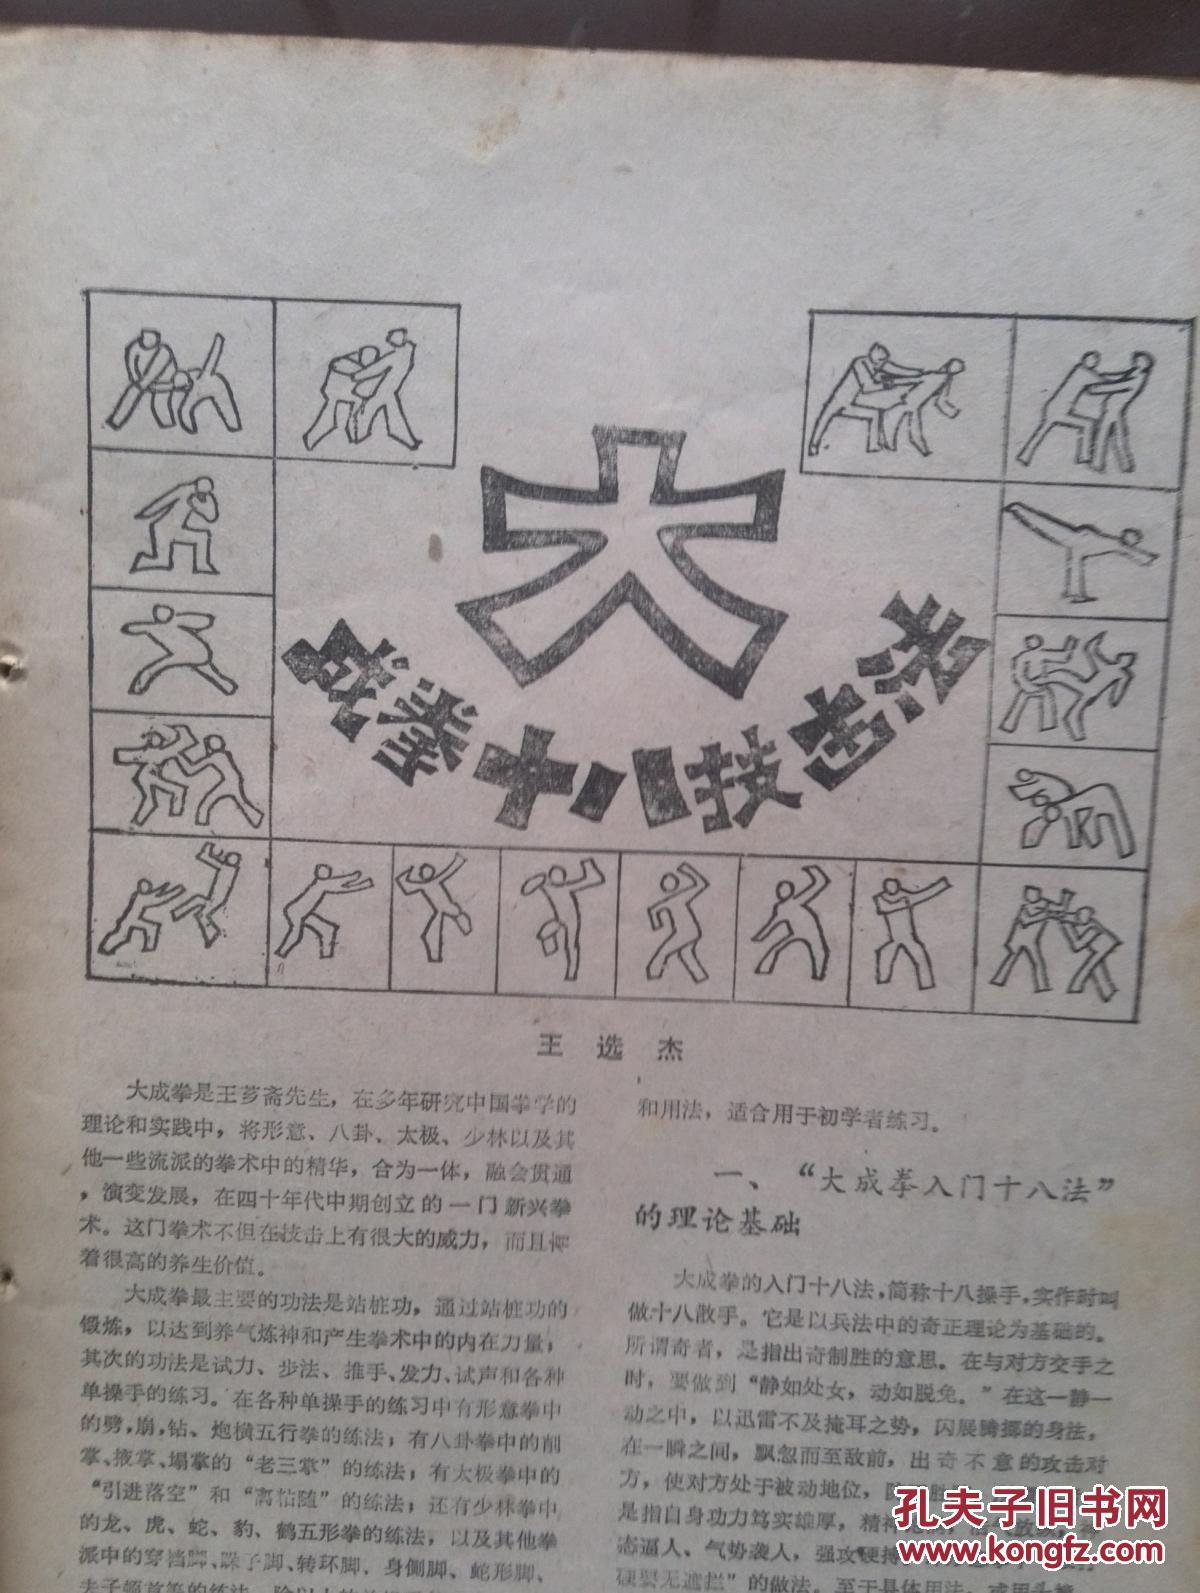 大
成拳十八技击法
王选杰
大成拳是王芗斋先生，在多年研究中国拳学的
理论和实践中，将形意、八卦、太极、少林以及其
他一些流派的拳术中的精华，合为一体，融会贯通
，演变发展，在四十年代中期创立的一门新兴拳
术。这门拳术不但在技击上有很大的威力，而且
着很高的养生价值。
大成拳最主要的功法是站桩功，通过站桩功的
锻炼，以达到养气炼神和产生拳术中的内在力量，
其次的功法是试力、步法、推手、发力、试声和各种
单操手的练习。在各种单操手的练习中有形意拳中
的劈，崩，钻、炮横五行拳的练法；有八卦拳中的削
掌、掖掌、塌掌的“老三掌”的练法；有太极拳中的
“引进落空”和“离粘随”的练法；还有少林拳中
的龙、虎、蛇、豹、鹤五形拳的练法，以及其他拳
派中的穿裆脚、跺子脚、转环脚、身侧脚、蛇形脚、
和用法，适合用于初学者练习。
一、“大成拳入门十八法”
的理论基础
大成拳的入门十八法，简称十八操手，实作时叫
做十八散手。它是以兵法中的奇正理论为基础的。
所谓奇者，是指出奇制胜的意思。在与对方交手之
时，要做到“静如处女，动如脱兔。”在这一静一
动之中，以迅雷不及掩耳之势，闪展腾挪的身法，
在一瞬之间，飘忽而至敌前，出奇不意的攻击对
方，使对方处于被动地位，
是指自身功力笃实雄厚，精神
态逼人、气势袭人，强攻硬搏
硬要无遮拦”的做法。至于具体用法，
孔夫子旧书网
www.kongfz.com